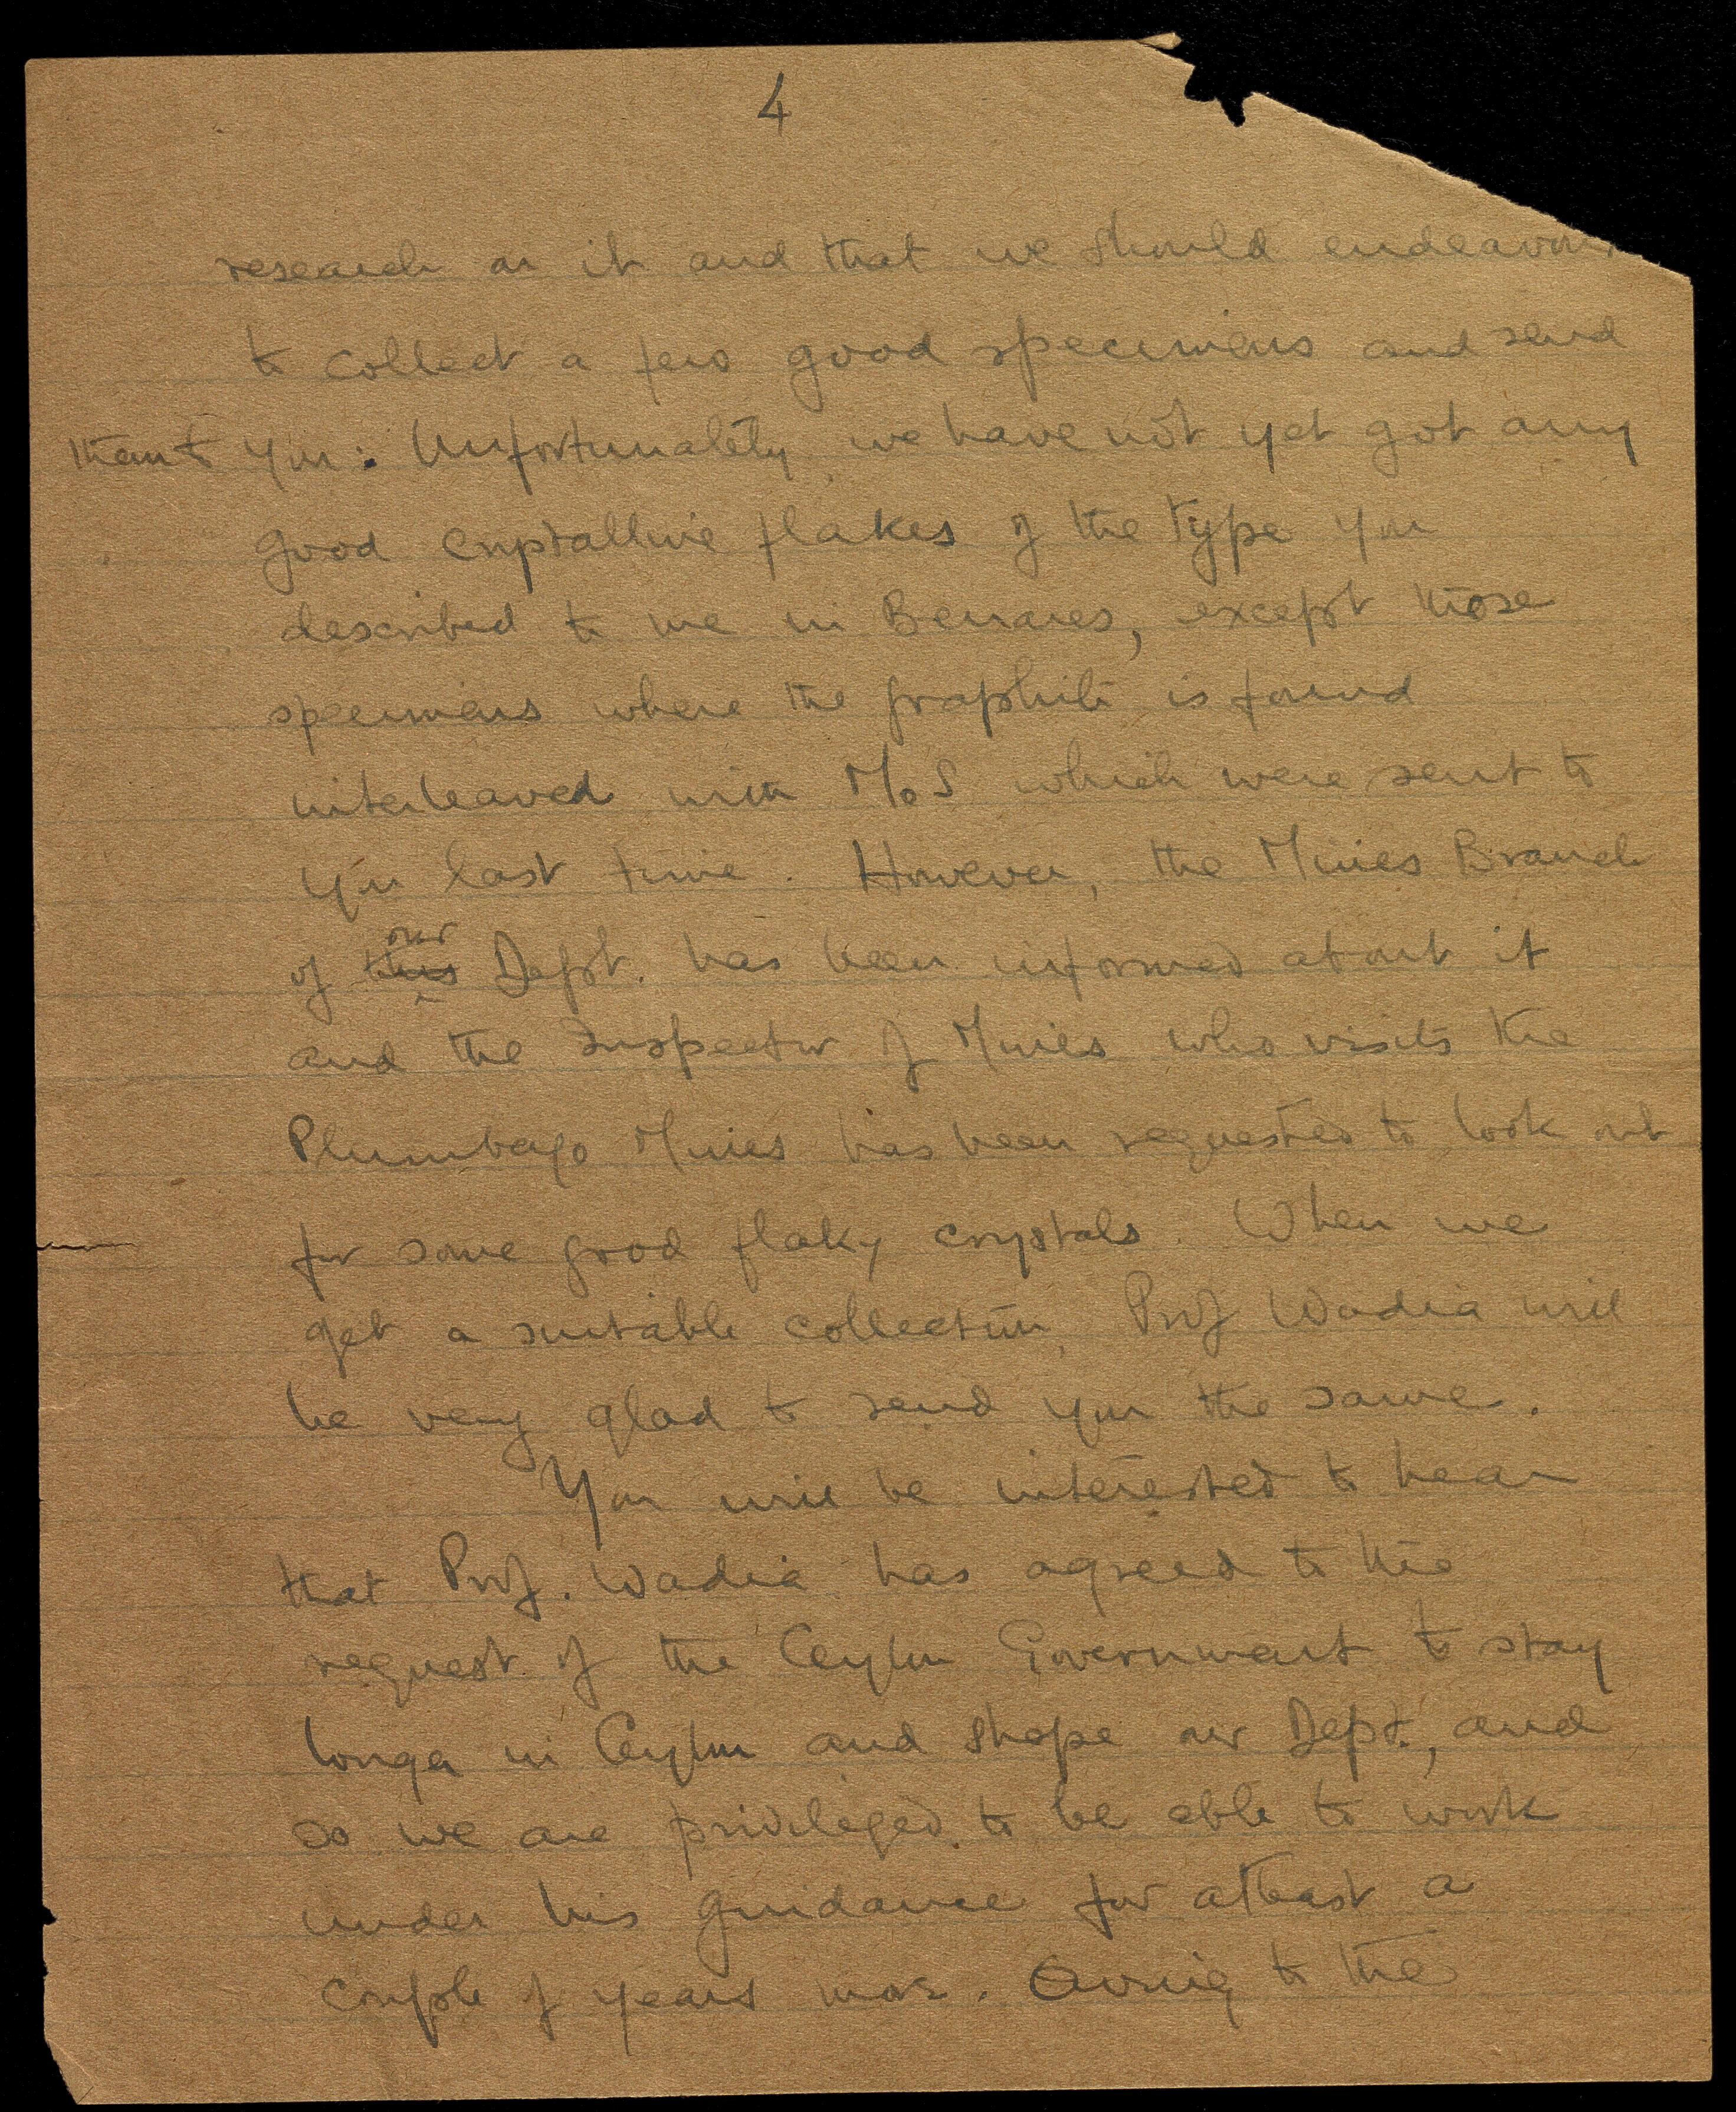 4
research on it and that we should endeavour
to collect a few good specimens and send
them to you. Unfortunately, we have not yet got any
good crystalline flakes of the type you
described to me in Benares, except those
specimens where the graphite is found
interleaved with MoS which were sent to
you last time. However, the Mines Branch
our
of this Dept. has been informed about it
and the Inspector of Mines who visits the
Plumbago Mines has been requested to look out
for some good flaky crystals. When we
get a suitable collection, Prof Wadia will
be very glad to send you the same.
You will be interested to hear
that Prof. Wadia has agreed to the
request of the Ceylon Government to stay
longer in Ceylon and shape our Dept., and
so we are privileged to be able to work
under his guidance for atleast a
couple of years more. Owing to the